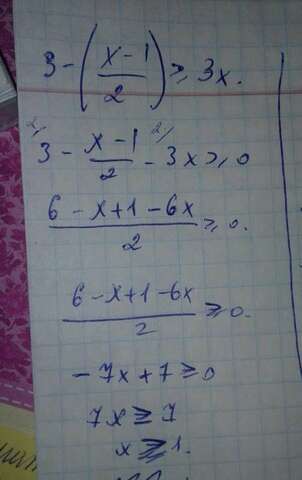 3 - ( (x - 1) / 2 ) ≥ 3x.
2/ 2/
3 - (x - 1) / 2 - 3x ≥ 0
(6 - x + 1 - 6x) / 2 ≥ 0.
(6 - x + 1 - 6x) / 2 ≥ 0.
- 7x + 7 ≥ 0
7x ≥ 7
x ≥ 1.